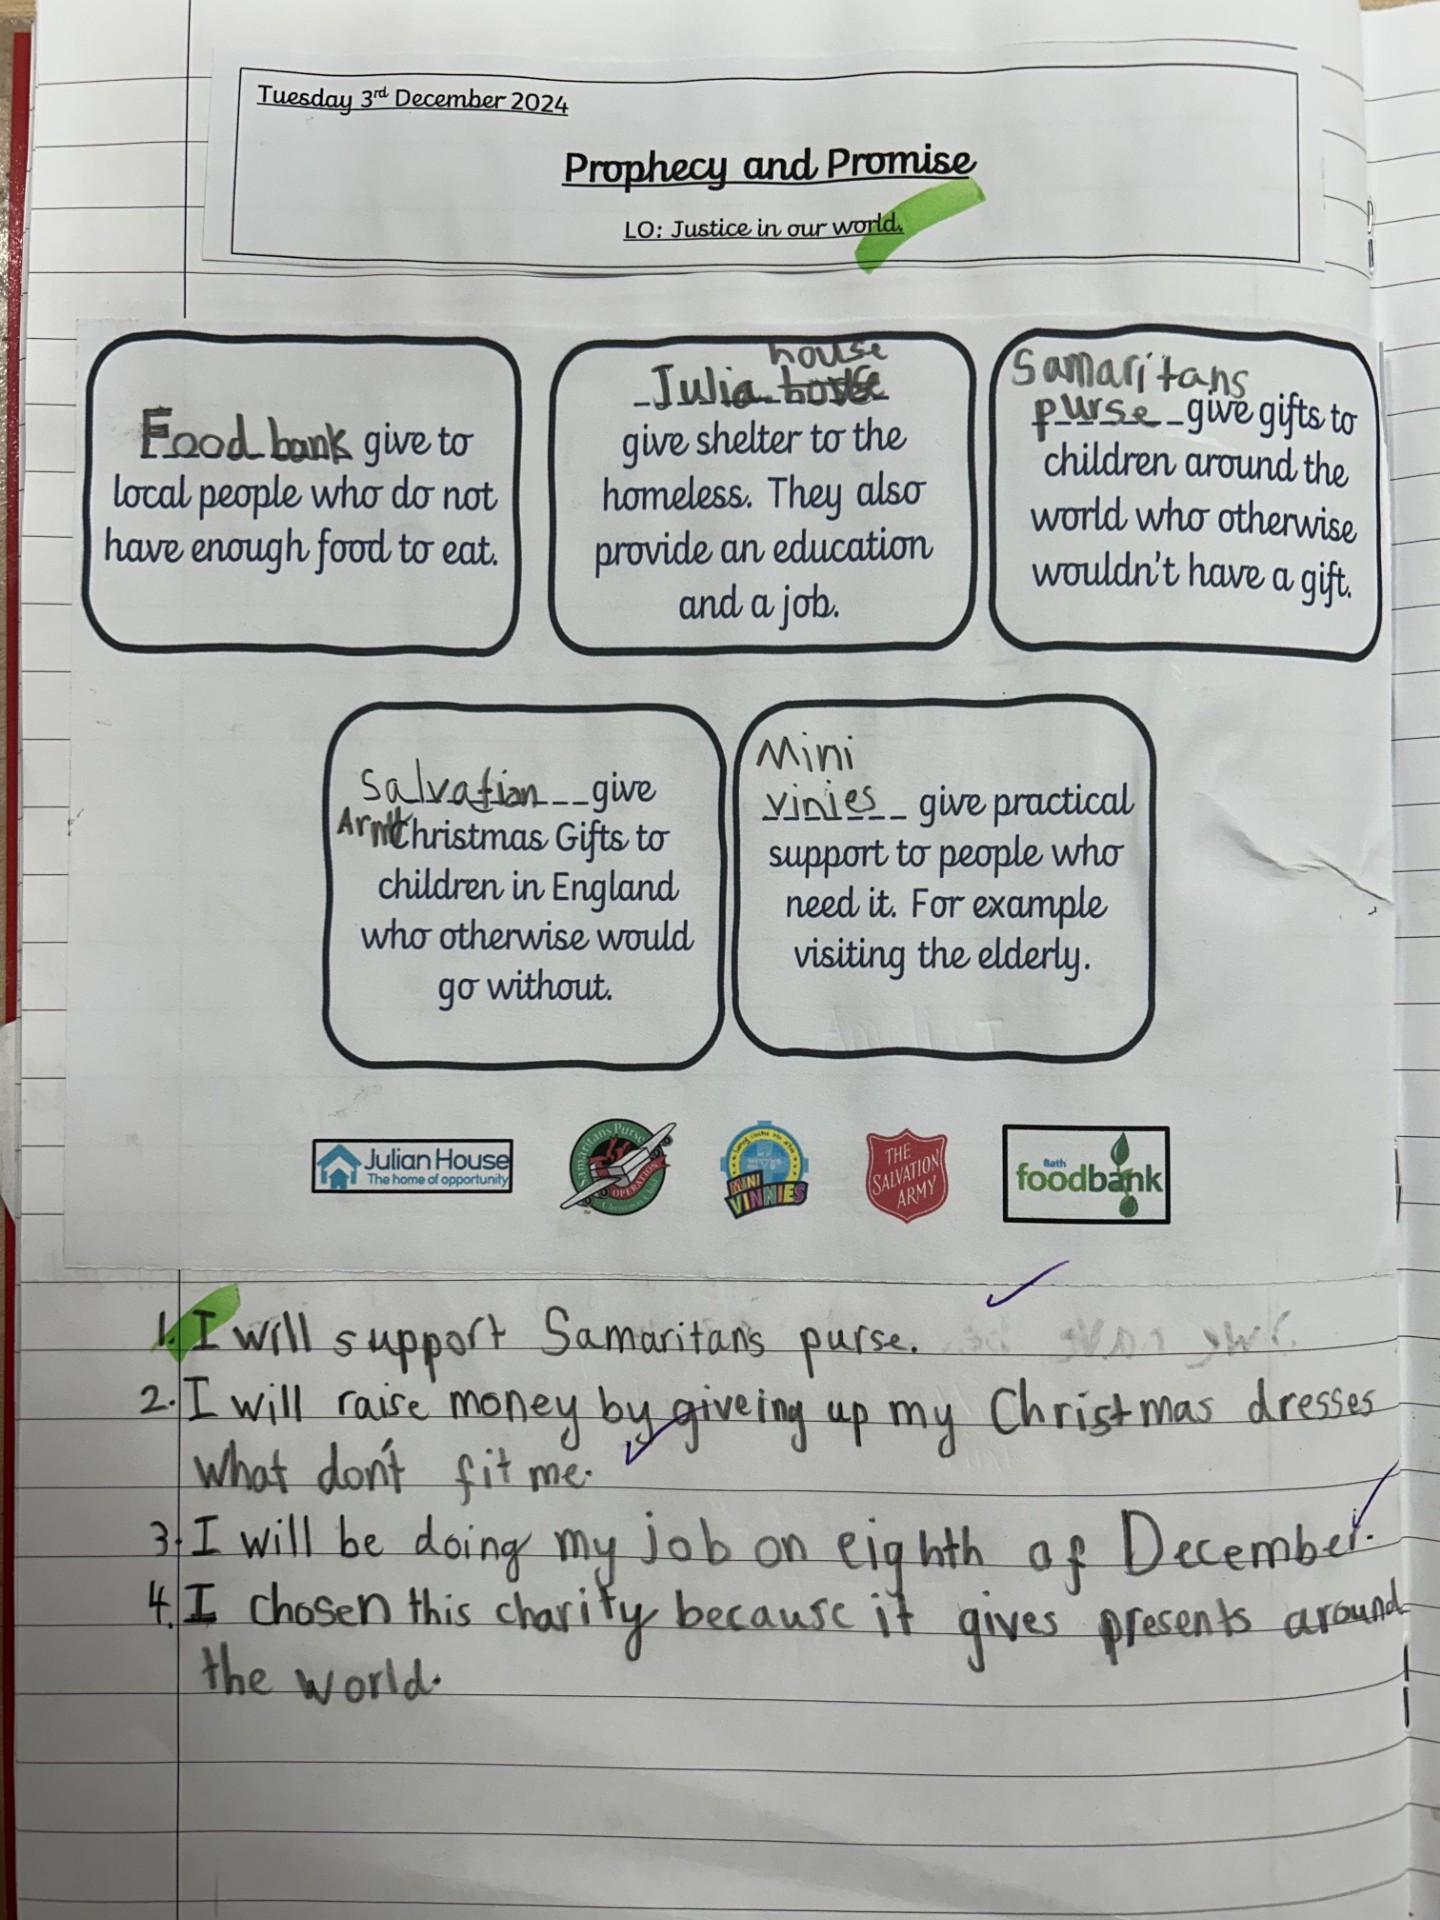 Tuesday 3rd December 2024
Prophecy and Promise
LO: Justice in our world.
Food bank give to
local people who do not
have enough food to eat.
house
Julia
give shelter to the
homeless. They also
provide an education
and a job.
Samaritans
purse give gifts to
children around the
world who otherwise
wouldn't have a gift.
Salvation give
Army Christmas Gifts to
children in England
who otherwise would
go without.
Mini
vinies give practical
support to people who
need it. For example
visiting the elderly.
Julian House
The home of opportunity
Samaritan's Purse
OPERATION
Christmas Child
MINI
VINNIES
THE
SALVATION
ARMY
Bath
foodbank
1. I will support Samaritans purse.
2. I will raise money by giveing up my Christmas dresses
what don't fit me.
3. I will be doing my job on eighth of December.
4. I chosen this charity because it gives presents around
the world.